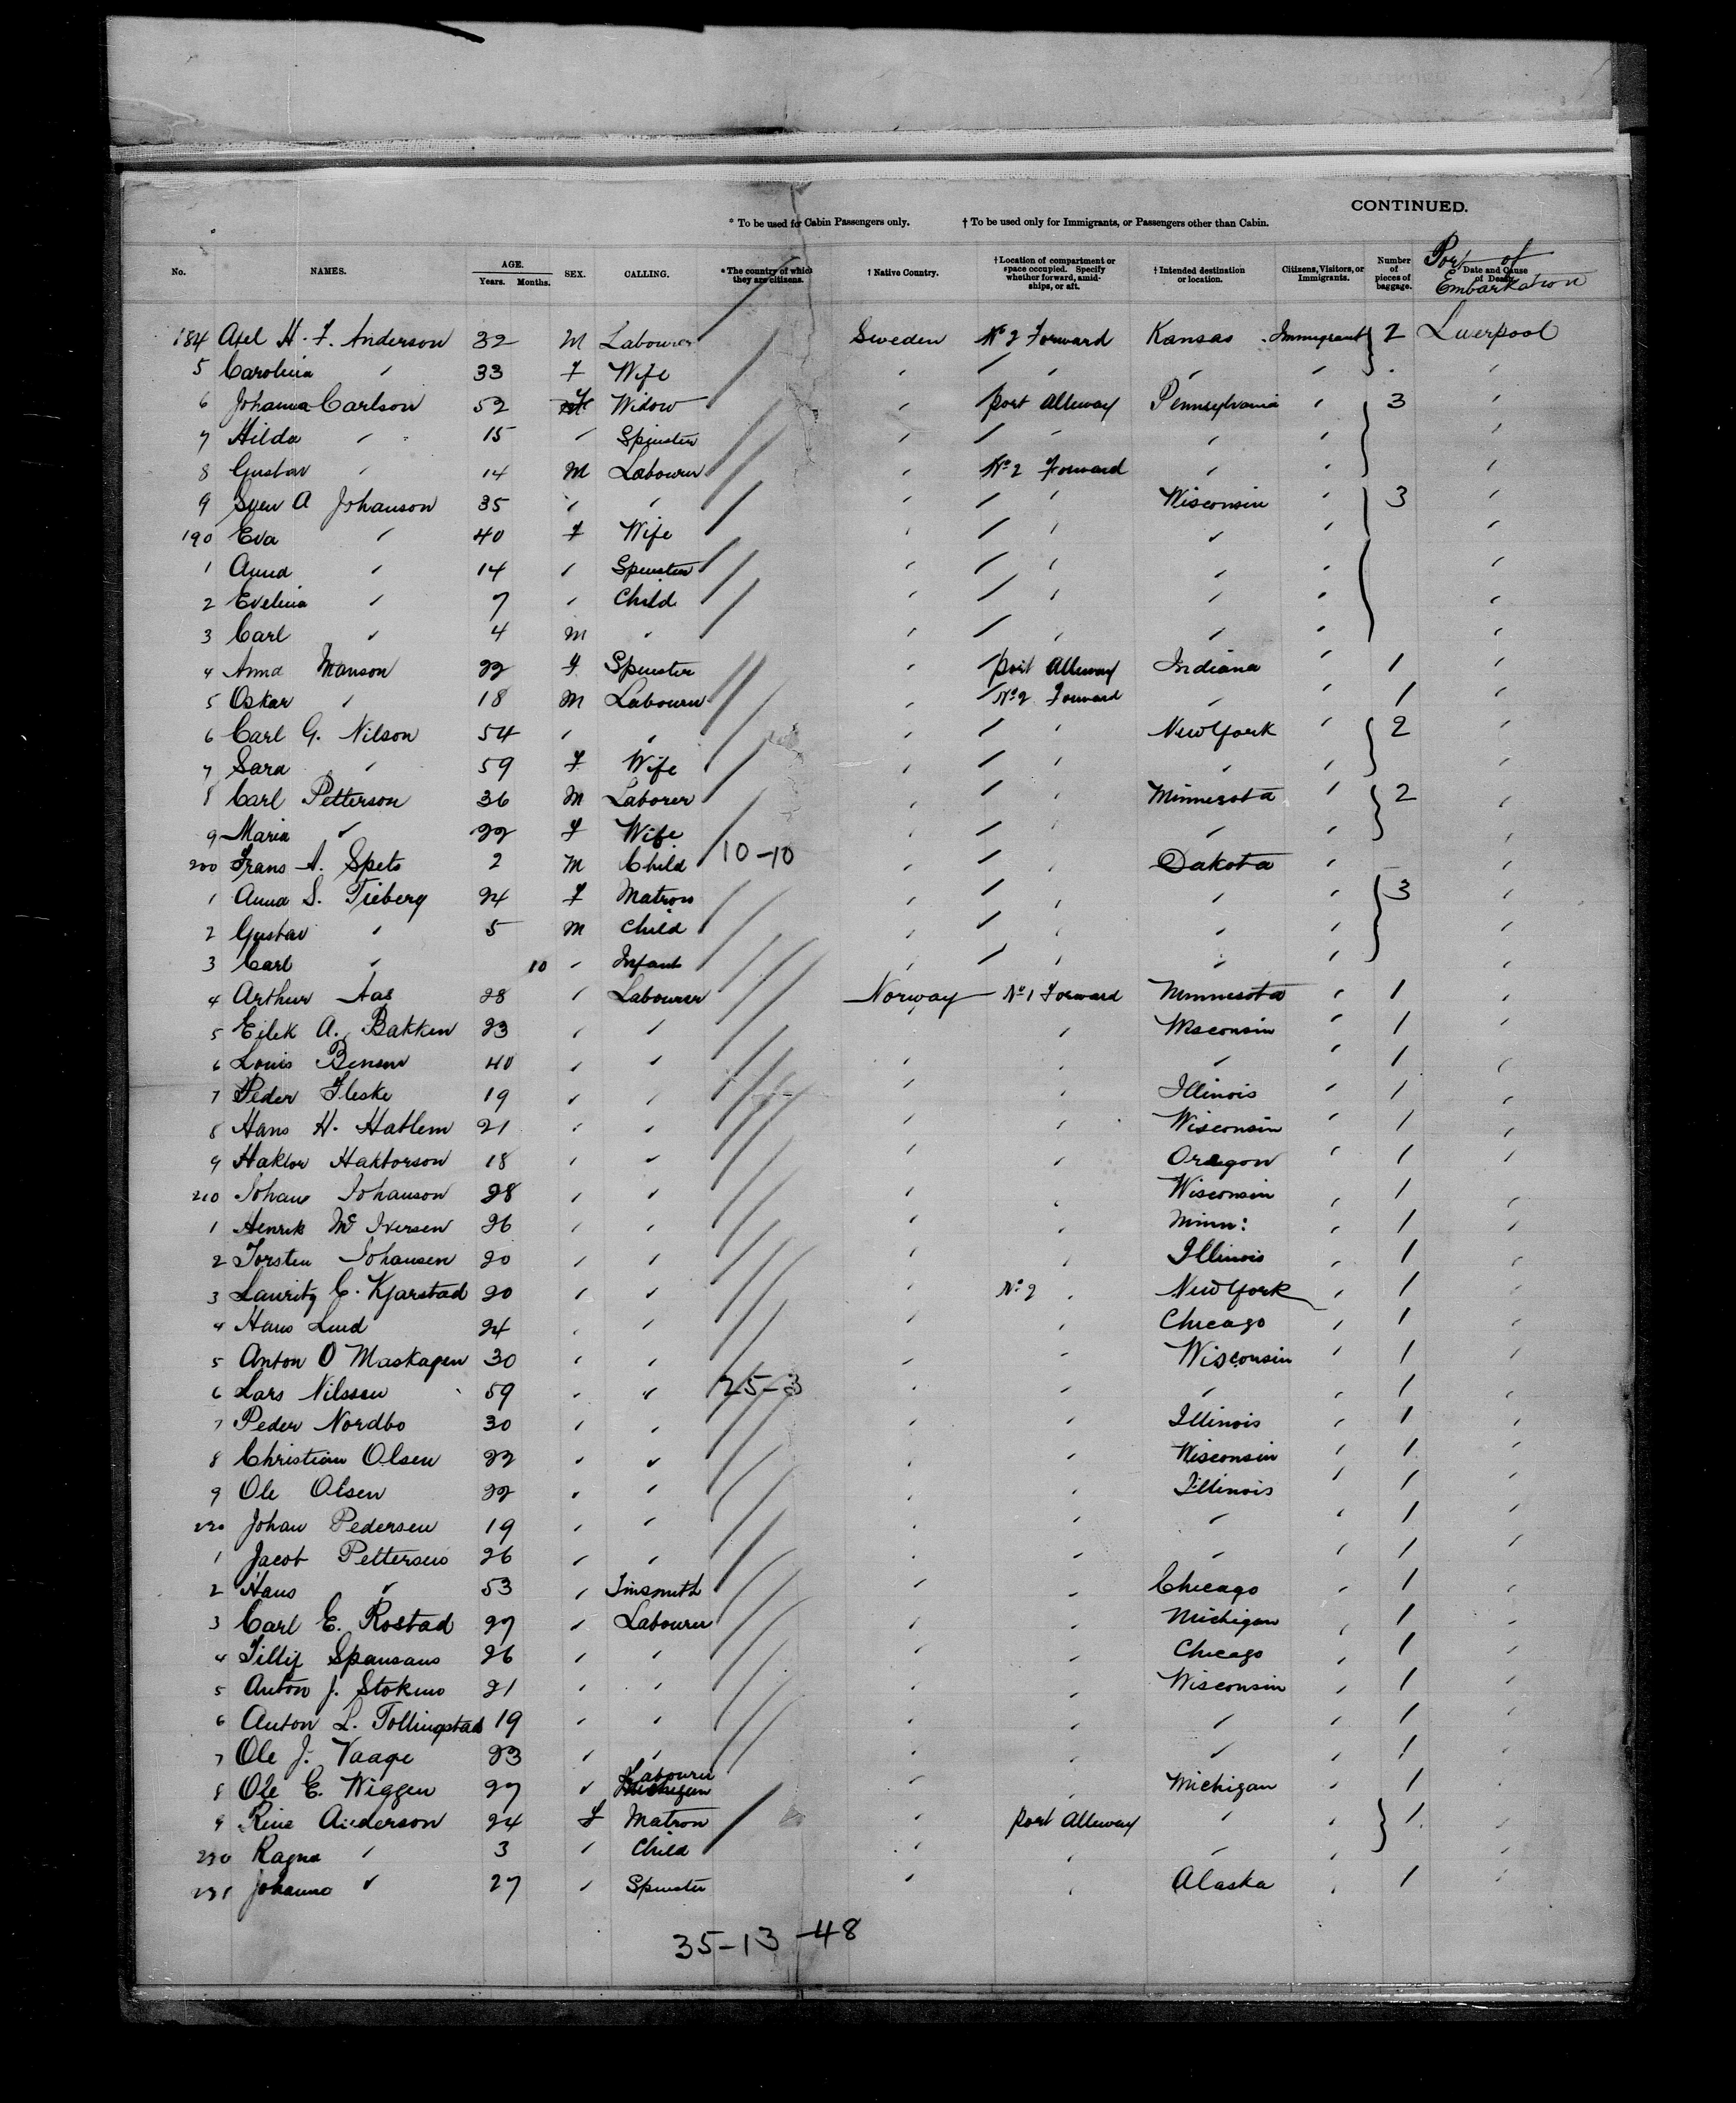 CONTINUED.
* To be used for Cabin Passengers only. † To be used only for Immigrants, or Passengers other than Cabin.
No. NAMES. AGE. Years. Months. SEX. CALLING. * The country of which they are citizens. † Native Country. † Location of compartment or space occupied. Specify whether forward, amidships, or aft. † Intended destination or location. Citizens, Visitors, or Immigrants. Number of pieces of baggage. Date and Cause of Death. Port of Embarkation
184 Axel H. F. Anderson 32 M Labourer Sweden No 2 Forward Kansas Immigrant 2 Liverpool
5 Carolina " 33 F Wife " " " " " "
6 Johanna Carlson 52 F Widow " port Alleway Pennsylvania " 3 "
7 Hilda " 15 " Spinster " " " " " "
8 Gustav " 14 M Labourer " No 2 Forward " " "
9 Sven A Johanson 35 " " " " " Wisconsin " 3 "
190 Eva " 40 F Wife " " " " " "
1 Anna " 14 " Spinster " " " " " "
2 Evelina " 7 " Child " " " " " "
3 Carl " 4 M " " " " " " "
4 Anna Manson 22 F Spinster " port Alleway Indiana " 1 "
5 Oskar " 18 M Labourer " No 2 Forward " " 1 "
6 Carl G. Nilson 54 " " " " " New York " 2 "
7 Sara " 59 F Wife " " " " " "
8 Carl Petterson 36 M Laborer " " " Minnesota " 2 "
9 Maria " 22 F Wife " " " " " "
200 Frans A. Spets 2 M Child 10-10 " " " Dakota " – "
1 Anna S. Fieberg 24 F Matron " " " " " 3 "
2 Gustav " 5 M Child " " " " " "
3 Carl " 10 " Infant " " " " " "
4 Arthur Aas 28 " Labourer Norway No 1 Forward Minnesota " 1 "
5 Eilek A. Bakken 23 " " " Wisconsin " 1 "
6 Louis Benson 40 " " " " " " 1 "
7 Peder Fleske 19 " " " " Illinois " 1 "
8 Hans H. Hatlem 21 " " " " Wisconsin " 1 "
9 Haktor Haktorson 18 " " " " Oregon " 1 "
210 Johan Johanson 28 " " " " Wisconsin " 1 "
1 Henrik Mc Iversen 26 " " " " Minn: " 1 "
2 Torsten Johansen 20 " " " " Illinois " 1 "
3 Lauritz C. Kjarstad 20 " " " No 2 " New York " 1 "
4 Hans Lund 24 " " " " Chicago " 1 "
5 Anton O Maskagen 30 " " " " Wisconsin " 1 "
6 Lars Nilssen 59 " " 25-3 " " " " 1 "
7 Peder Nordbo 30 " " " " Illinois " 1 "
8 Christian Olsen 22 " " " " Wisconsin " 1 "
9 Ole Olsen 22 " " " " Illinois " 1 "
220 Johan Pedersen 19 " " " " " " 1 "
1 Jacob Pettersen 26 " " " " " " 1 "
2 Hans " 53 " Tinsmith " " Chicago " 1 "
3 Carl E. Rostad 27 " Labourer " " Michigan " 1 "
4 Tillif 26 " " " " Chicago " 1 "
5 Anton J. 21 " " " " Wisconsin " 1 "
6 Anton L. Tollingstad 19 " " " " " " 1 "
7 Ole J. Vaage 23 " " " " " " 1 "
8 Ole E. Wiggen 27 " Labourer " " Michigan " 1 "
9 Rine Anderson 24 F Matron " port Alleway " " 1 "
230 Ragna " 3 " Child " " " " "
231 Johanna " 27 " Spinster " " Alaska " 1 "
35-13-48